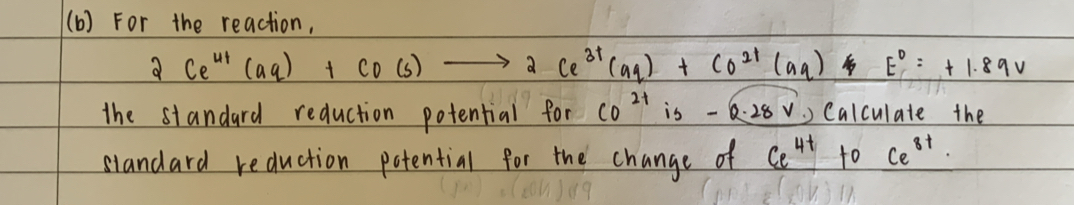 (b) For the reaction,
2 Ce⁴⁺ (aq) + Co (s) → 2 Ce³⁺ (aq) + Co²⁺ (aq) E⁰ = + 1.89V
the standard reduction potential for Co²⁺ is - 0.28 V. Calculate the
standard reduction potential for the change of Ce⁴⁺ to Ce³⁺.